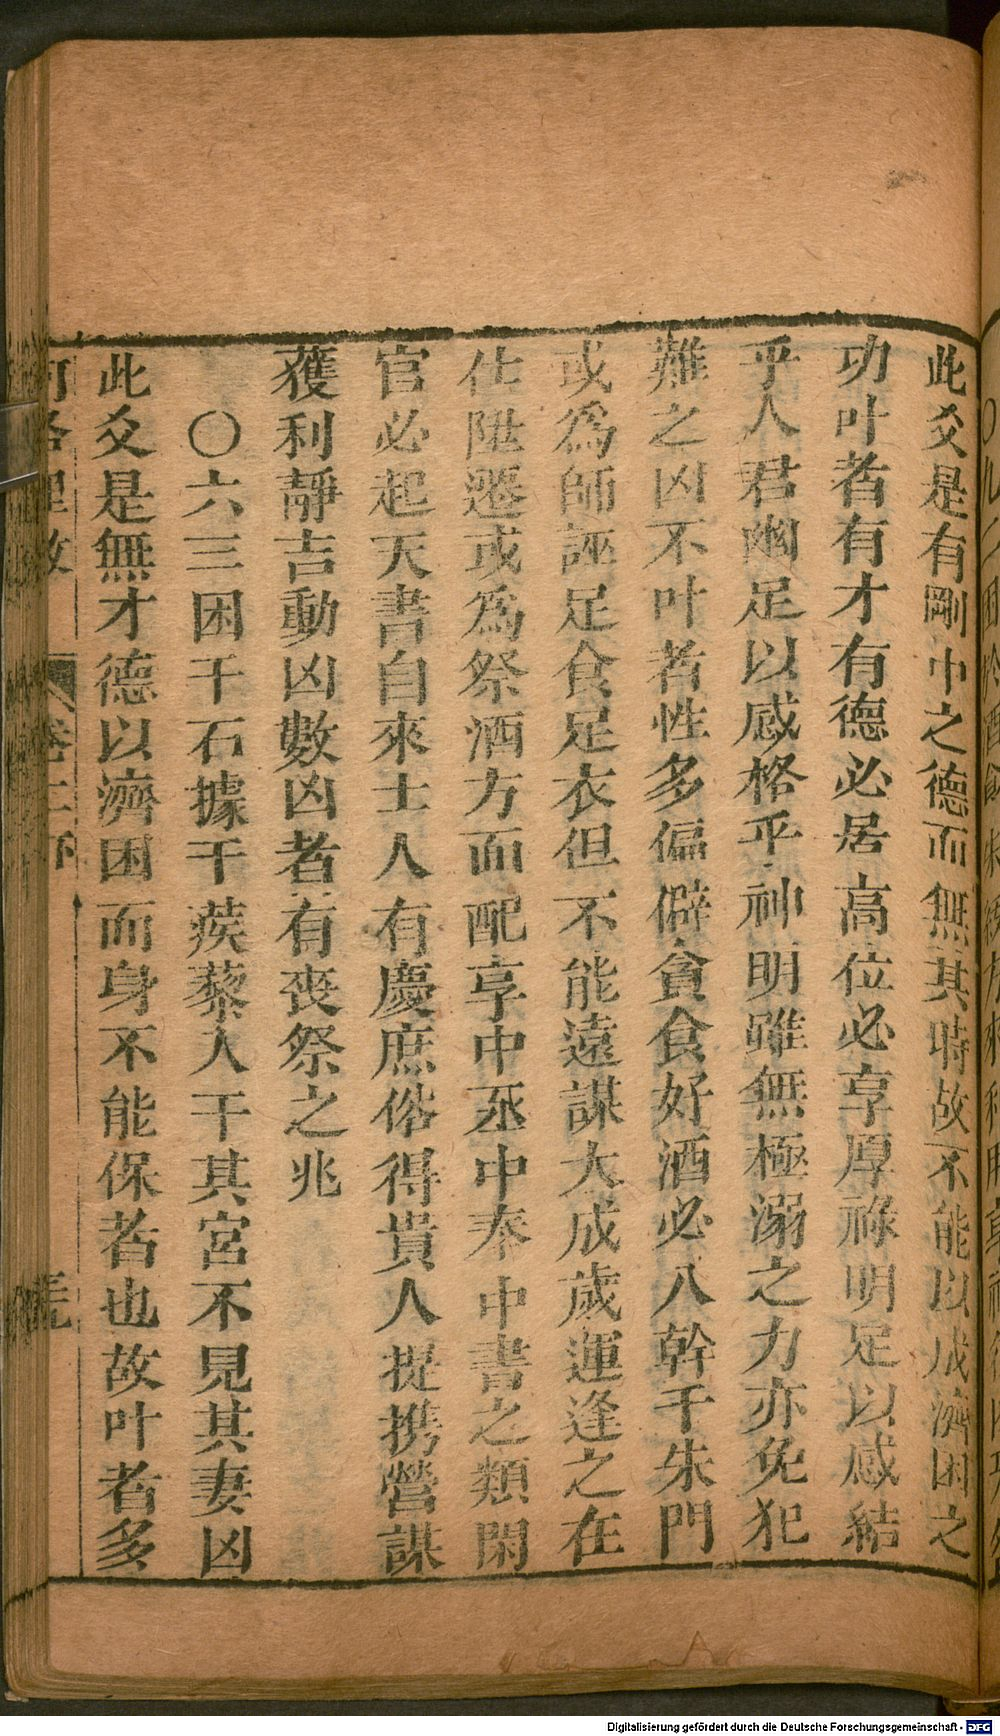 此爻是有剛中之德而無其時故不能以成濟困之
功叶者有才有德必居高位必享厚祿明足以感結
乎人君幽足以感格乎神明雖無極溺之力亦免犯
難之凶不叶者性多偏僻貪食好酒必八幹干朱門
或為師誣足食足衣但不能遠謀大成歲運逢之在
仕陞遷或為祭酒方面配享中丞中奉中書之類閑
官必起天書自來士人有慶庶俗得貴人提携營謀
獲利靜吉動凶數凶者有喪祭之兆
〇六三困干石據干蒺藜入干其宮不見其妻凶
此爻是無才德以濟困而身不能保者也故叶者多
河洛理數 卷二
Digitalisierung gefördert durch die Deutsche Forschungsgemeinschaft - DFG